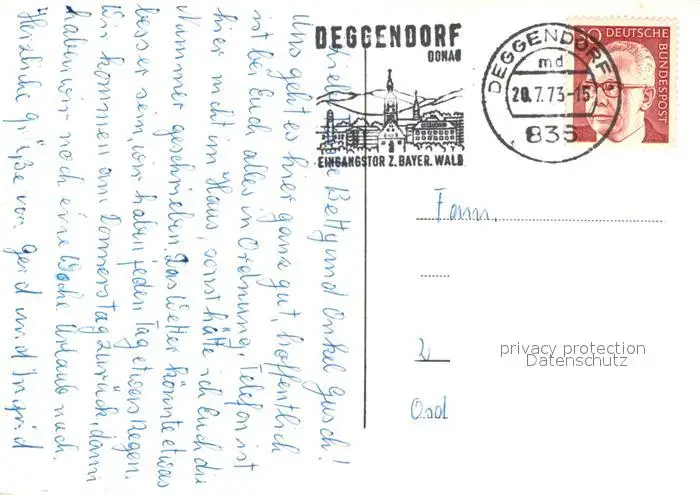 Liebe Betty und Onkel Gusch!
Uns geht es hier ganz gut, hoffentlich
ist bei Euch alles in Ordnung. Telefon ist
hier nicht im Haus, sonst hätte ich Euch die
Nummer geschrieben. Das Wetter könnte etwas
besser sein, wir haben jeden Tag etwas Regen.
Wir kommen am Donnerstag zurück, dann
haben wir noch eine Woche Urlaub nach.
Herzliche Grüße von Gerd und Ingrid
DEGGENDORF
DONAU
EINGANGSTOR Z. BAYER. WALD
DEGGENDORF
md
20.7.73-15
836
DEUTSCHE
BUNDESPOST
Fam.
2
privacy protection
Datenschutz